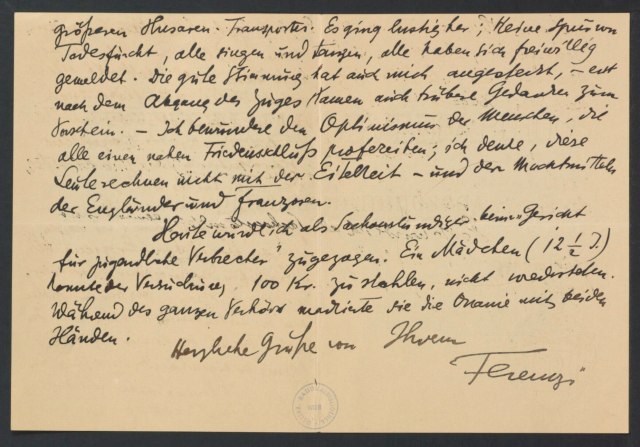 größeren Husaren-Transportes. Es ging lustig her; keine Spur von
Todesfurcht, alle singen und tanzen, alle haben sich freiwillig
gemeldet. Die gute Stimmung hat auch mich angesteckt, – erst
nach dem Abgang des Zuges kamen auch trübere Gedanken zum
Vorschein. – Ich bewundere den Optimismus der Menschen, die
alle einen nahen Friedensschluß profezeiten; ich denke, diese
Leute rechnen nicht mit der Eitelkeit – und den Machtmitteln
der Engländer und Franzosen.
Heute wurde ich als Sachverständiger beim Gericht
für jugendliche Verbrecher" zugezogen. Ein Mädchen (12 ½ J.)
konnte der Versuchung, 100 Kr. zu stehlen, nicht wiederstehen.
Während des ganzen Verhörs markierte sie die Onanie mit beiden
Händen.
Herzliche Grüße von Ihrem
Ferenczi